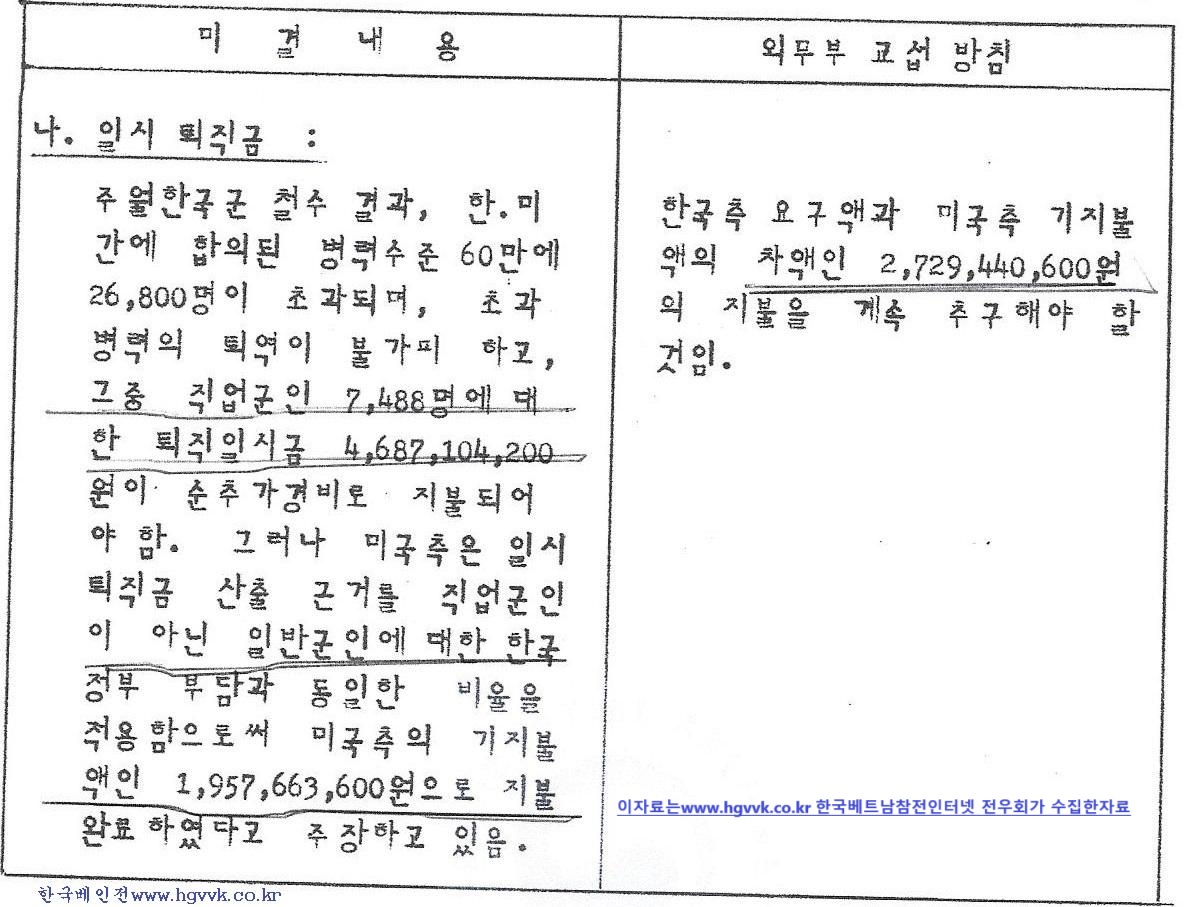 미 결 내 용
외무부 교섭 방침
나. 일시 퇴직금 :
주월한국군 철수 결과, 한.미
간에 합의된 병력수준 60만에
26,800명이 초과되며, 초과
병력의 퇴역이 불가피 하고,
그중 직업군인 7,488명에 대
한 퇴직일시금 4,687,104,200
원이 순추가경비로 지불되어
야 함. 그러나 미국측은 일시
퇴직금 산출 근거를 직업군인
이 아닌 일반군인에 대한 한국
정부 부담과 동일한 비율을
적용함으로써 미국측의 기지불
액인 1,957,663,600원으로 지불
완료하였다고 주장하고 있음.
한국측 요구액과 미국측 기지불
액의 차액인 2,729,440,600원
의 지불을 계속 추구해야 할
것임.
이자료는www.hgvvk.co.kr 한국베트남참전인터넷 전우회가 수집한자료
한국베인전www.hgvvk.co.kr